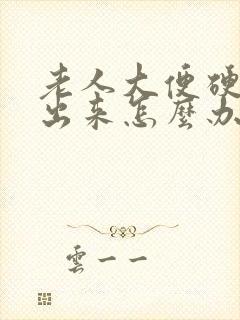 老人大便硬
出来怎麽办
雲一一